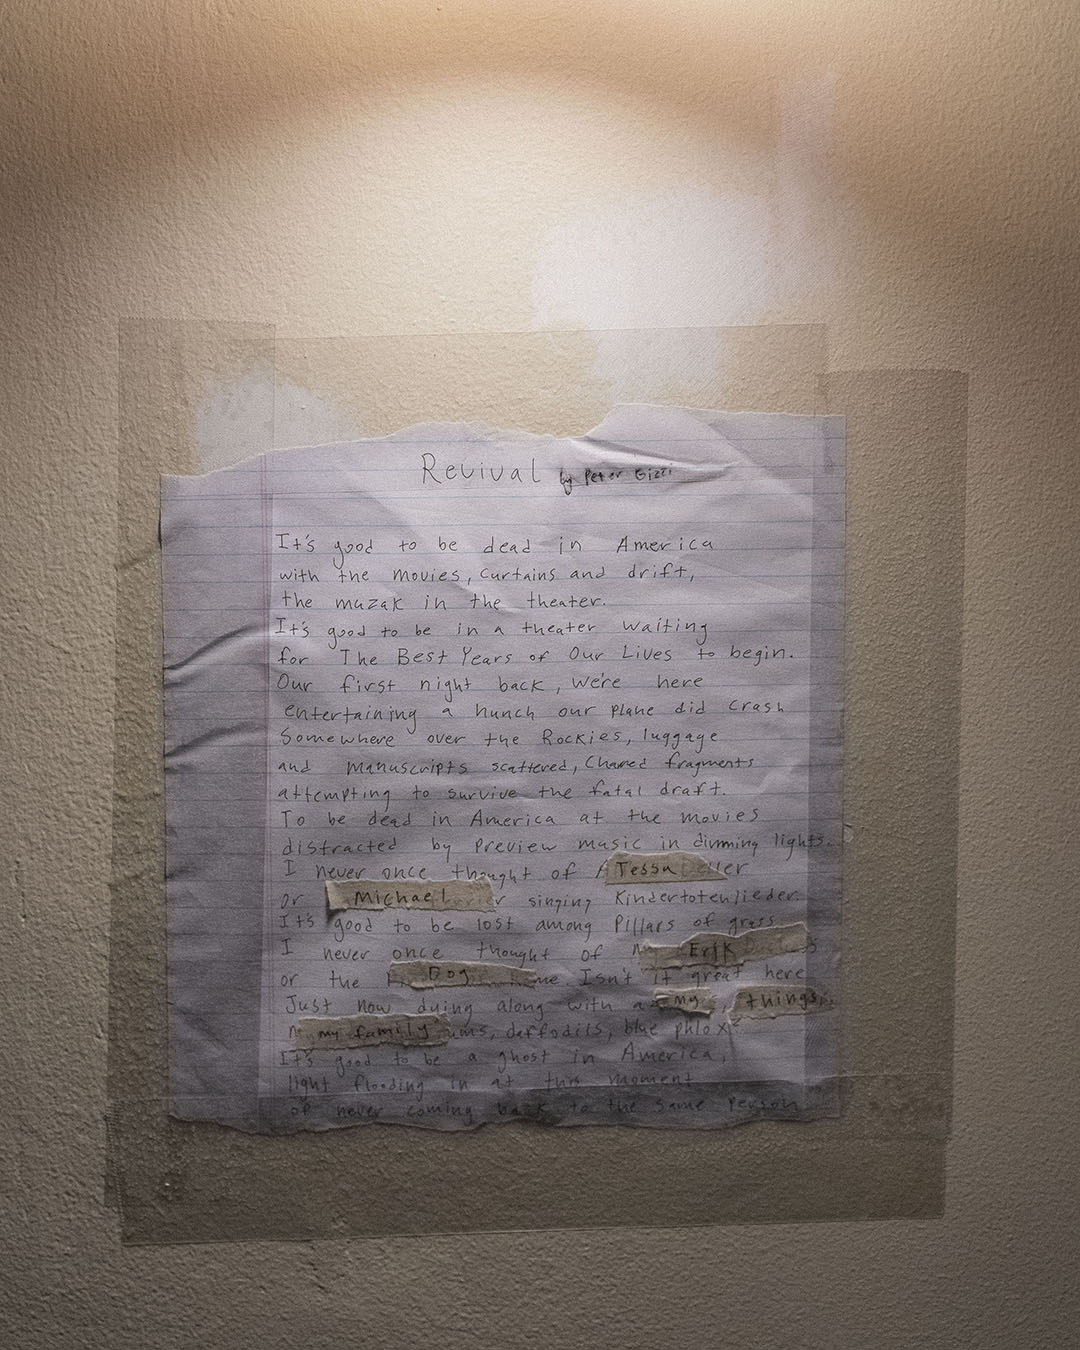 Revival by Peter Gizzi
It's good to be dead in America
with the movies, curtains and drift,
the muzak in the theater.
It's good to be in a theater waiting
for The Best Years of Our Lives to begin.
Our first night back, we're here
entertaining a hunch our plane did crash
Somewhere over the Rockies, luggage
and manuscripts scattered, Charred fragments
attempting to survive the fatal draft.
To be dead in America at the movies
distracted by preview music in dimming lights.
I never once thought of Tessa
or Michael singing Kindertotenlieder.
It's good to be lost among Pillars of grass
I never once thought of My Erik
or the Dog Isn't it great here
Just now dying along with my things,
my family daffodils, blue phlox?
It's good to be a ghost in America,
light flooding in at this moment
of never coming back to the same person